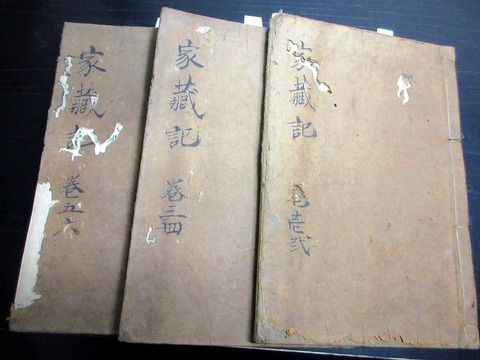 家藏記
卷壱弐
家藏記
卷三四
家藏記
卷五六